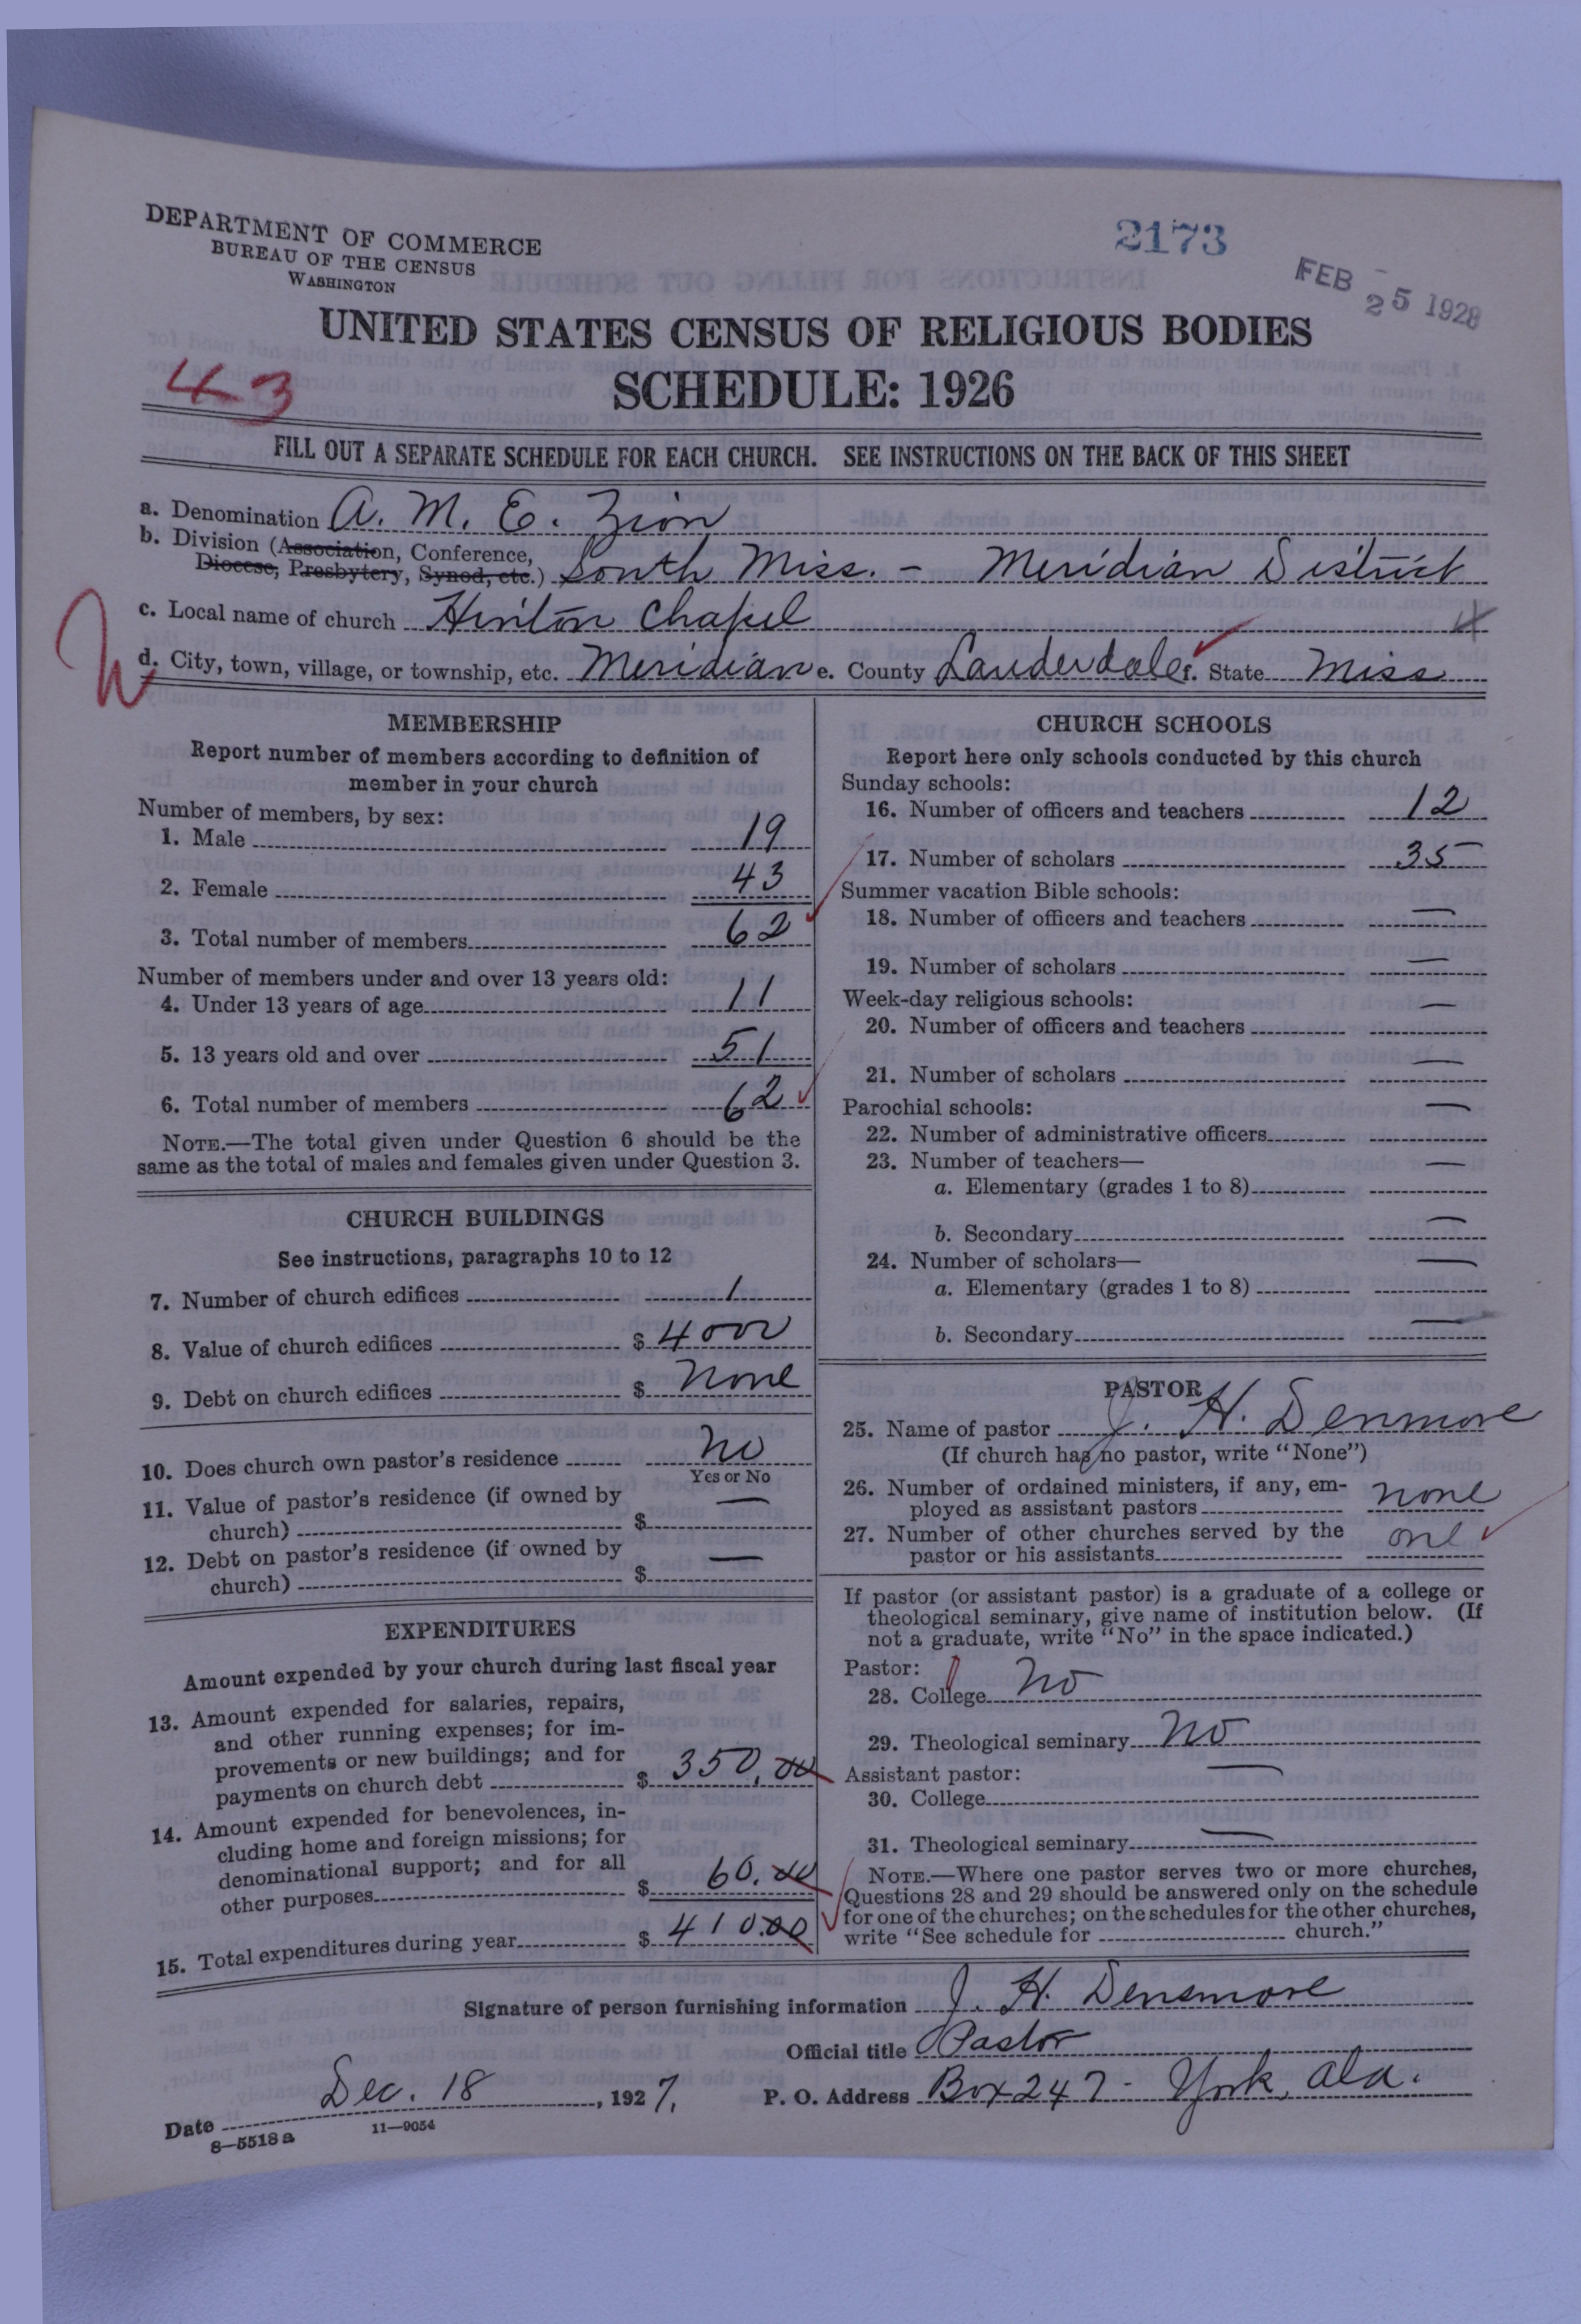 DEPARTMENT OF COMMERCE
BUREAU OF THE CENSUS
WASHINGTON
2173
FEB 25 1928
UNITED STATES CENSUS OF RELIGIOUS BODIES
SCHEDULE: 1926
43
FILL OUT A SEPARATE SCHEDULE FOR EACH CHURCH. SEE INSTRUCTIONS ON THE BACK OF THIS SHEET
a. Denomination A. M. E. Zion
b. Division (Association, Conference,
Diocese, Presbytery, Synod, etc.) South Miss. - Meridian District
c. Local name of church Hinton Chapel
d. City, town, village, or township, etc. Meridian e. County Lauderdale f. State Miss
MEMBERSHIP
Report number of members according to definition of
member in your church
Number of members, by sex:
1. Male 19
2. Female 43
3. Total number of members 62
Number of members under and over 13 years old:
4. Under 13 years of age 11
5. 13 years old and over 51
6. Total number of members 62
NOTE.—The total given under Question 6 should be the
same as the total of males and females given under Question 3.
CHURCH BUILDINGS
See instructions, paragraphs 10 to 12
7. Number of church edifices 1
8. Value of church edifices $ 4000
9. Debt on church edifices $ None
10. Does church own pastor's residence No
Yes or No
11. Value of pastor's residence (if owned by
church) $ —
12. Debt on pastor's residence (if owned by
church) $ —
EXPENDITURES
Amount expended by your church during last fiscal year
13. Amount expended for salaries, repairs,
and other running expenses; for im-
provements or new buildings; and for
payments on church debt $ 350.00
14. Amount expended for benevolences, in-
cluding home and foreign missions; for
denominational support; and for all
other purposes $ 60.00
15. Total expenditures during year $ 410.00
CHURCH SCHOOLS
Report here only schools conducted by this church
Sunday schools:
16. Number of officers and teachers 12
17. Number of scholars 35
Summer vacation Bible schools:
18. Number of officers and teachers —
19. Number of scholars —
Week-day religious schools:
20. Number of officers and teachers —
21. Number of scholars —
Parochial schools:
22. Number of administrative officers —
23. Number of teachers—
a. Elementary (grades 1 to 8) —
b. Secondary —
24. Number of scholars—
a. Elementary (grades 1 to 8) —
b. Secondary —
PASTOR
25. Name of pastor J. H. Denmore
(If church has no pastor, write "None")
26. Number of ordained ministers, if any, em-
ployed as assistant pastors none
27. Number of other churches served by the
pastor or his assistants one
If pastor (or assistant pastor) is a graduate of a college or
theological seminary, give name of institution below. (If
not a graduate, write "No" in the space indicated.)
Pastor:
28. College No
29. Theological seminary No
Assistant pastor:
30. College —
31. Theological seminary —
NOTE.—Where one pastor serves two or more churches,
Questions 28 and 29 should be answered only on the schedule
for one of the churches; on the schedules for the other churches,
write "See schedule for church."
Signature of person furnishing information J. H. Densmore
Official title Pastor
Date Dec. 18, 1927. P. O. Address Box 247 - York, Ala.
8—5518 a 11—9054